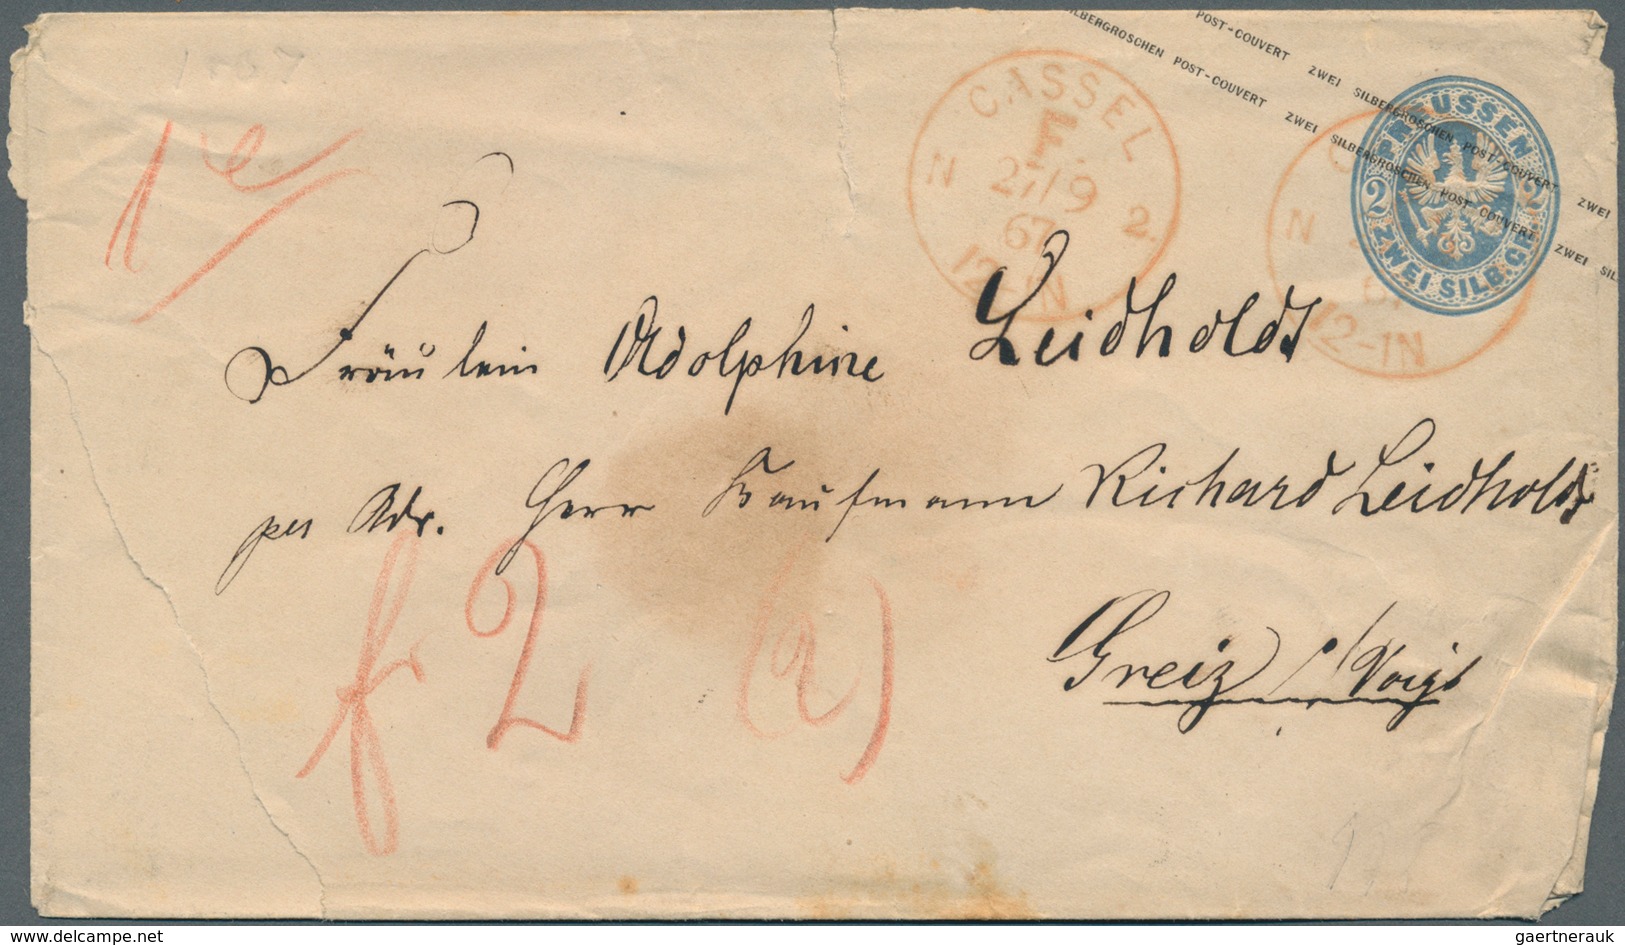 SILBERGROSCHEN POST-COUVERT ZWEI SILBERGROSCHEN POST-COUVERT ZWEI SIL
POST-COUVERT ZWEI SILBERGROSCHEN POST-COUVERT ZWEI
PREUSSEN
2 2
ZWEI SILB.GR.
CASSEL
F.
N 27/9 2.
67
12-1N
N
67
12-1N
1
Fräulein Adolphine Leidholdt
per Adr. Herr Kaufmann Richard Leidholdt
f 2 (a)
Greiz i/Voigt
delcampe.net
gaertnerauk